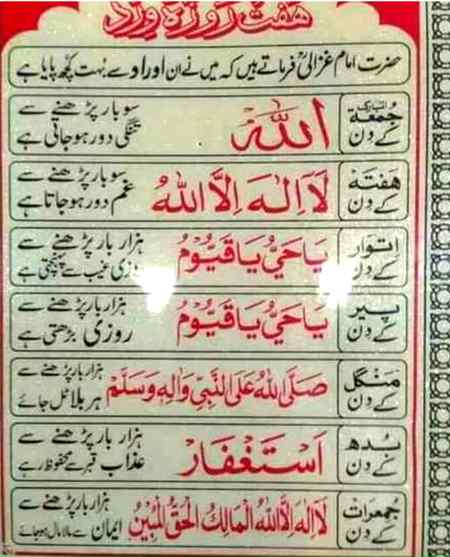 ہفت روزہ ورد
حضرت امام غزالیؒ فرماتے ہیں کہ میں نے ان اوراد سے بہت کچھ پایا ہے
جمعۃ المبارک کے دن
اللہ
سو بار پڑھنے سے
تنگی دور ہو جاتی ہے
ہفتہ کے دن
لَا اِلٰهَ اِلَّا اللهُ
سو بار پڑھنے سے
غم دور ہو جاتا ہے
اتوار کے دن
یَا حَیُّ یَا قَیُّوْمُ
ہزار بار پڑھنے سے
روزی غیب سے پہنچتی ہے
پیر کے دن
یَا حَیُّ یَا قَیُّوْمُ
ہزار بار پڑھنے سے
روزی بڑھتی ہے
منگل کے دن
صَلَّی اللهُ عَلَی النَّبِیِّ وَاٰلِهٖ وَسَلَّمَ
ہزار بار پڑھنے سے
ہر بلا ٹل جائے
بدھ کے دن
اَسْتَغْفَار
ہزار بار پڑھنے سے
عذاب قبر سے محفوظ رہے
جمعرات کے دن
لَا اِلٰهَ اِلَّا اللهُ الْمَالِكُ الْحَقُّ الْمُبِيْنُ
ہزار بار پڑھنے سے
ایمان سے مالا مال ہو جائے